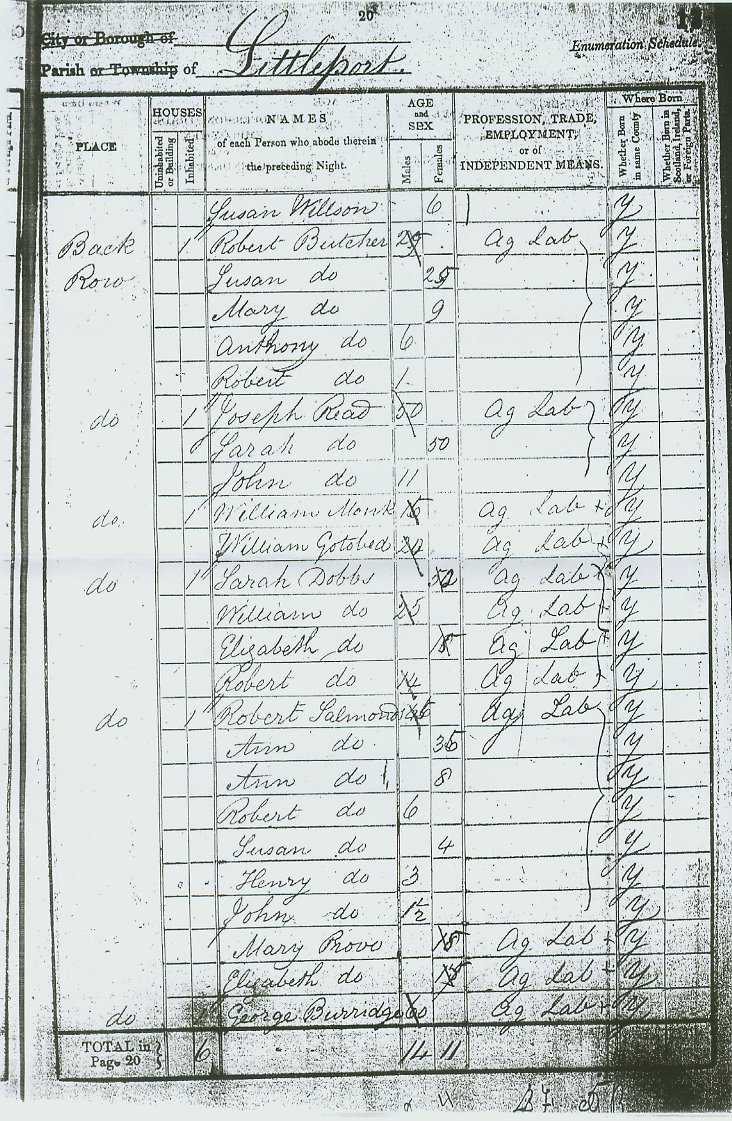 20
City or Borough of
Enumeration Schedule.
Parish or Township of Littleport.
PLACE
HOUSES
Uninhabited or Building
Inhabited
NAMES
of each Person who abode therein the preceding Night.
AGE and SEX
Males
Females
PROFESSION, TRADE, EMPLOYMENT, or of INDEPENDENT MEANS.
Where Born
Whether Born in same County
Whether Born in Scotland, Ireland, or Foreign Parts.
Susan Willson 6 y
Back 1 Robert Butcher 25 Ag Lab y
Row Susan do 25 y
Mary do 9 y
Anthony do 6 y
Robert do 1 y
do 1 Joseph Read 50 Ag Lab y
Sarah do 50 y
John do 11 y
do 1 William Monk 15 Ag Lab y
William Gotobed 20 Ag Lab y
do 1 Sarah Dobbs 50 Ag Lab y
William do 25 Ag Lab y
Elizabeth do 15 Ag Lab y
Robert do 14 Ag Lab y
do 1 Robert Salmond Ag Lab y
Ann do 35 y
Ann do 8 y
Robert do 6 y
Susan do 4 y
Henry do 3 y
John do 1½ y
Mary Provo 15 Ag Lab y
Elizabeth do 15 Ag Lab y
do 1 George Burridge 60 Ag Lab y
TOTAL in Page 20 6 14 11